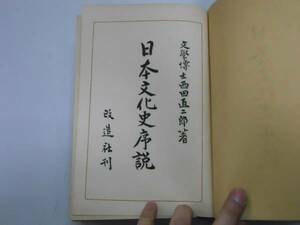 文學博士西田直二郎著
日本文化史序説
改造社刊